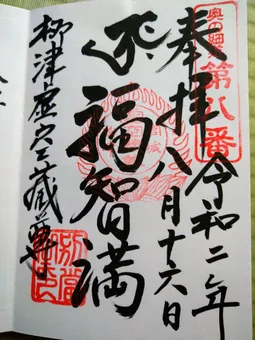 奥の細道
第八番
奉拝
令和二年
八月十六日
福智満
柳津虚空蔵尊
別當